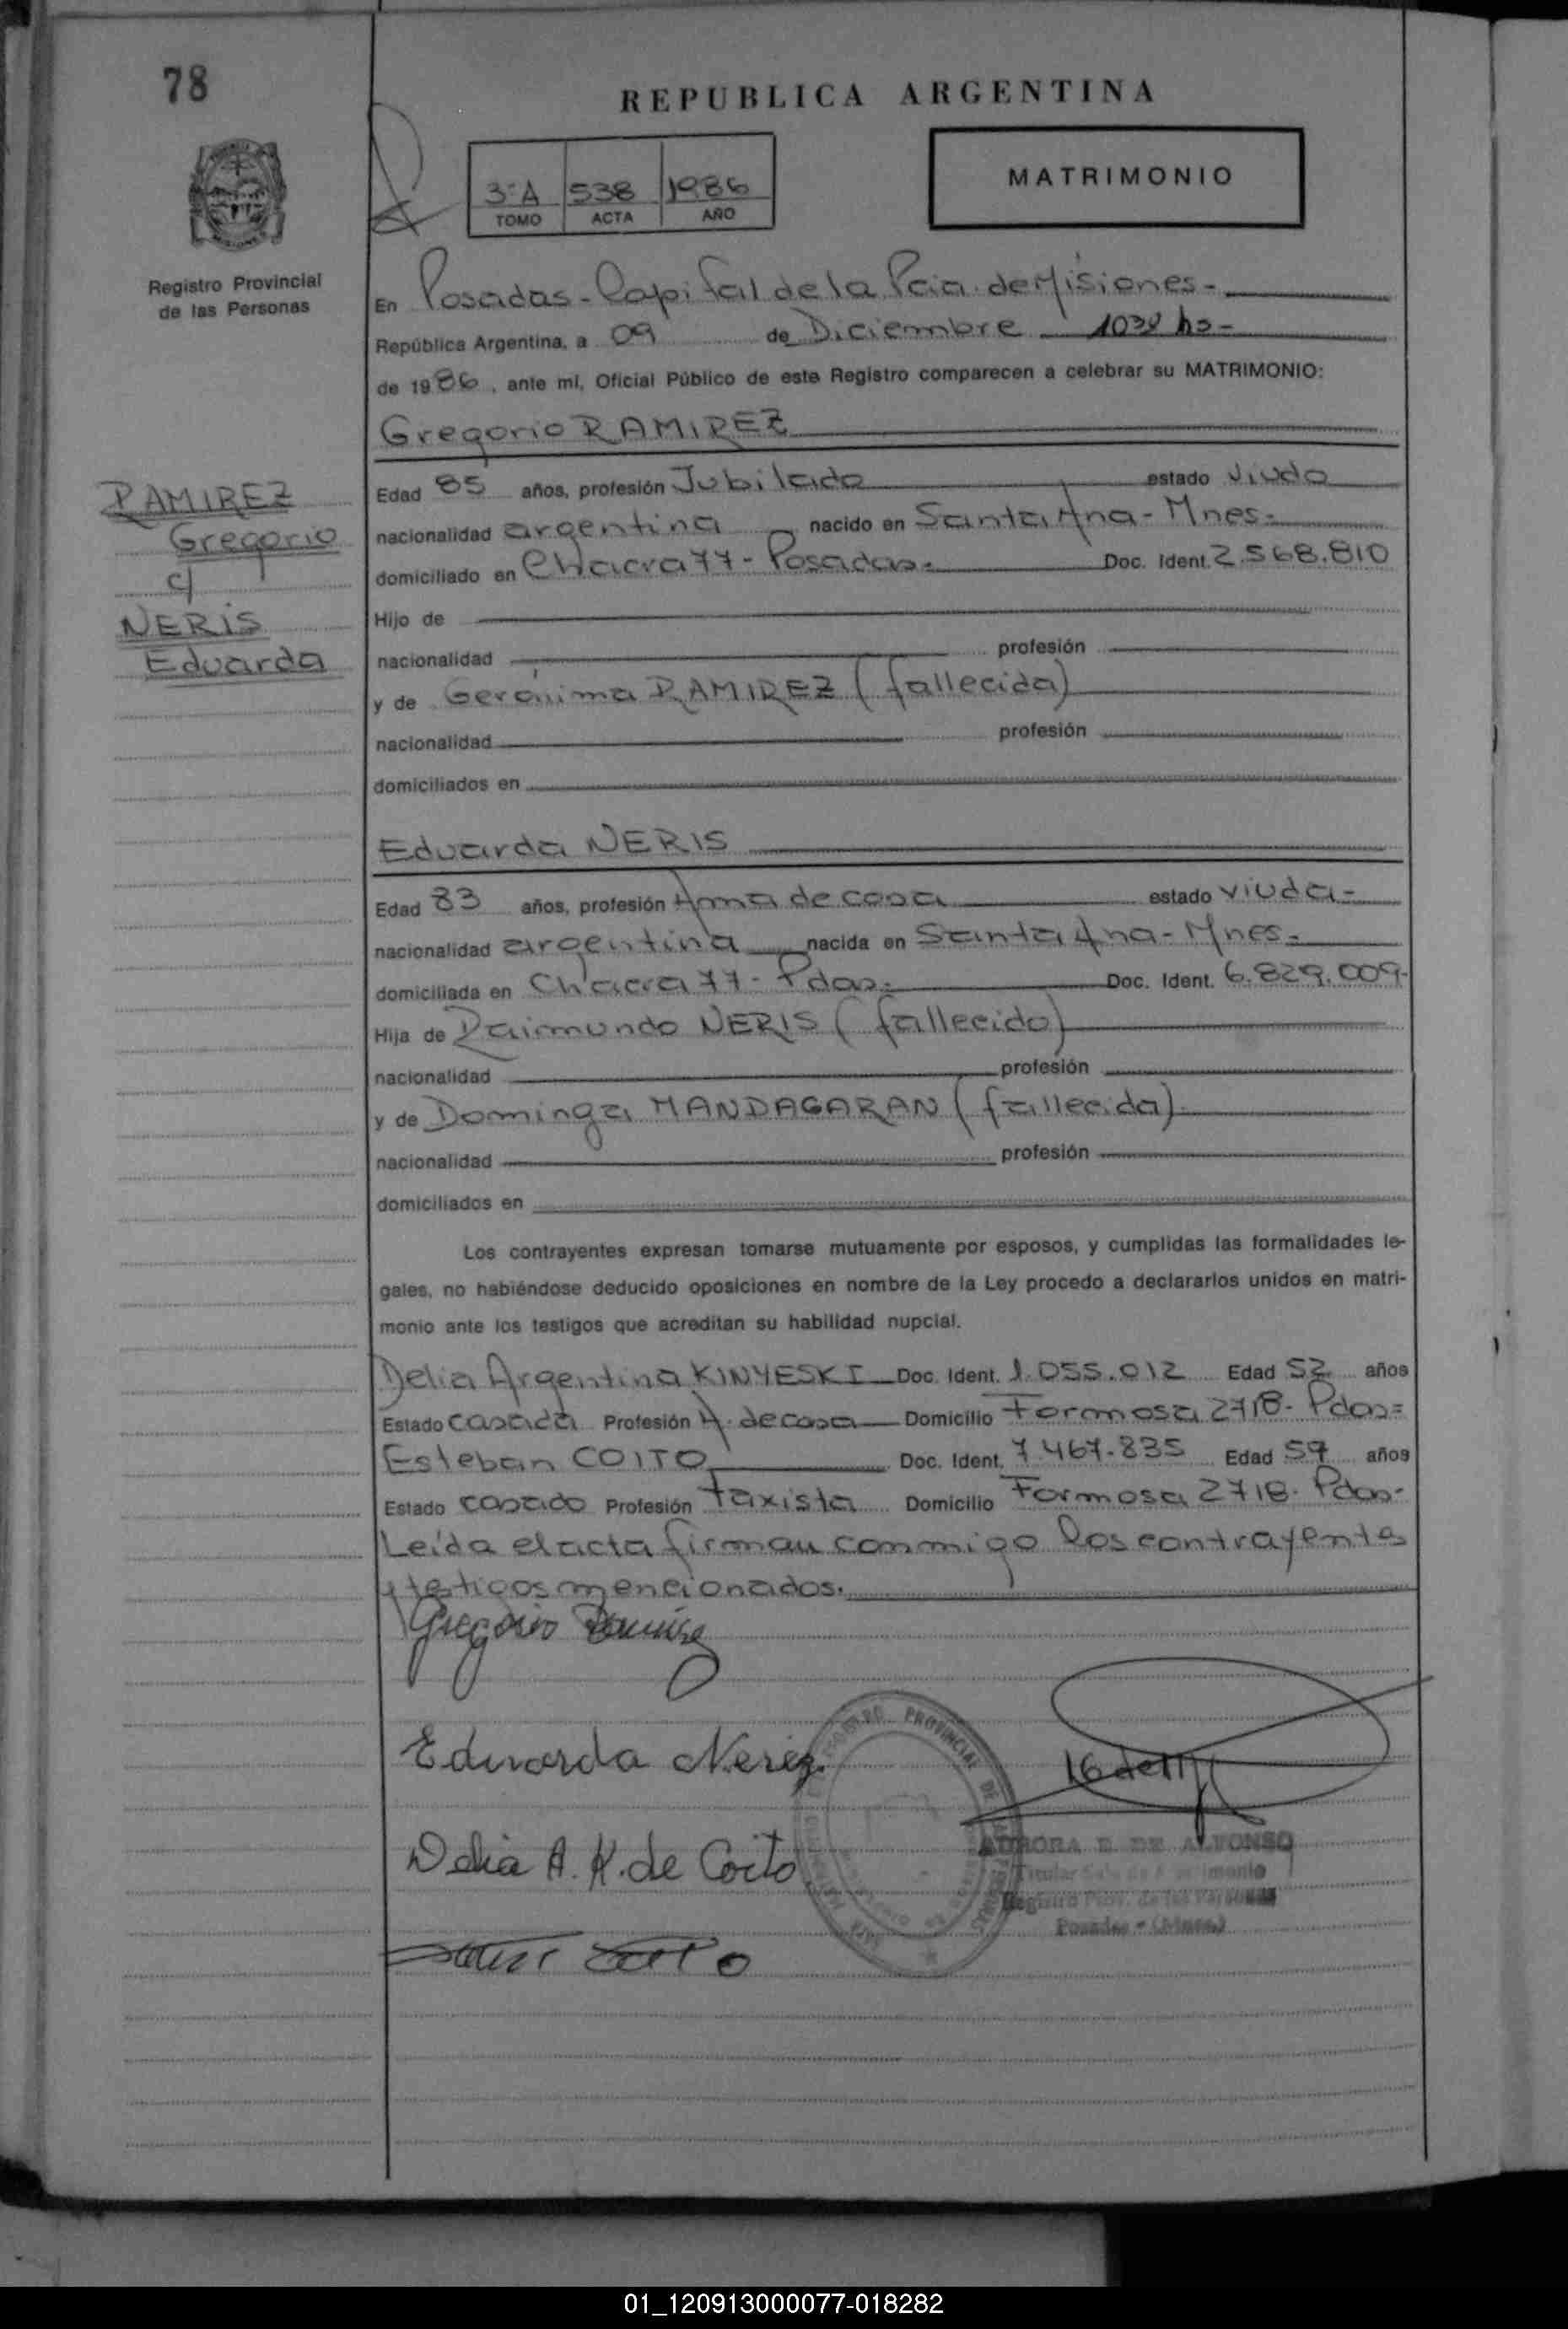 78
REPUBLICA ARGENTINA
3ºA 538 1986
TOMO ACTA AÑO
MATRIMONIO
Registro Provincial
de las Personas
En Posadas - Capital de la Pcia. de Misiones -
República Argentina, a 09 de Diciembre 1038 hs -
de 1986, ante mí, Oficial Público de este Registro comparecen a celebrar su MATRIMONIO:
Gregorio RAMIREZ
RAMIREZ
Gregorio
c/
NERIS
Eduarda
Edad 85 años, profesión Jubilado estado viudo
nacionalidad argentina nacido en Santa Ana - Mnes -
domiciliado en Chacra 77 - Posadas. Doc. Ident. 2.568.810
Hijo de
nacionalidad profesión
y de Gerónima RAMIREZ (fallecida)
nacionalidad profesión
domiciliados en
Eduarda NERIS
Edad 83 años, profesión Ama de casa estado viuda -
nacionalidad argentina nacida en Santa Ana - Mnes -
domiciliada en Chacra 77 - Pdas. Doc. Ident. 6.829.009-
Hija de Raimundo NERIS (fallecido)
nacionalidad profesión
y de Dominga MANDAGARAN (fallecida).
nacionalidad profesión
domiciliados en
Los contrayentes expresan tomarse mutuamente por esposos, y cumplidas las formalidades le-
gales, no habiéndose deducido oposiciones en nombre de la Ley procedo a declararlos unidos en matri-
monio ante los testigos que acreditan su habilidad nupcial.
Delia Argentina KINYESKI Doc. Ident. 1.055.012 Edad 52 años
Estado casada Profesión A. de casa Domicilio Formosa 2718 - Pdas =
Esteban COITO Doc. Ident. 7.467.835 Edad 59 años
Estado casado Profesión taxista Domicilio Formosa 2718 - Pdas -
Leída el acta firman conmigo los contrayentes
y testigos mencionados.
Gregorio Ramirez
Eduarda Neriz
Delia A. K. de Coito
REGISTRO PROVINCIAL DE LAS PERSONAS
AURORA E. DE ALFONSO
Titular Sala de Matrimonio
Registro Prov. de las Personas
Posadas - (Mnes.)
01_120913000077-018282